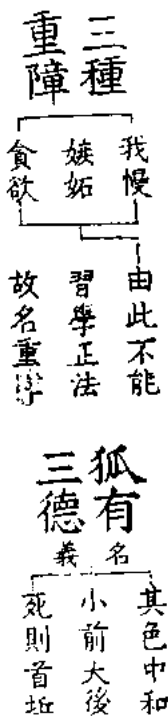 三種
重障
我慢
嫉妬
貪欲
由此不能
習學正法
故名重障
狐有
三德
名義
其色中和
小前大後
死則首坵